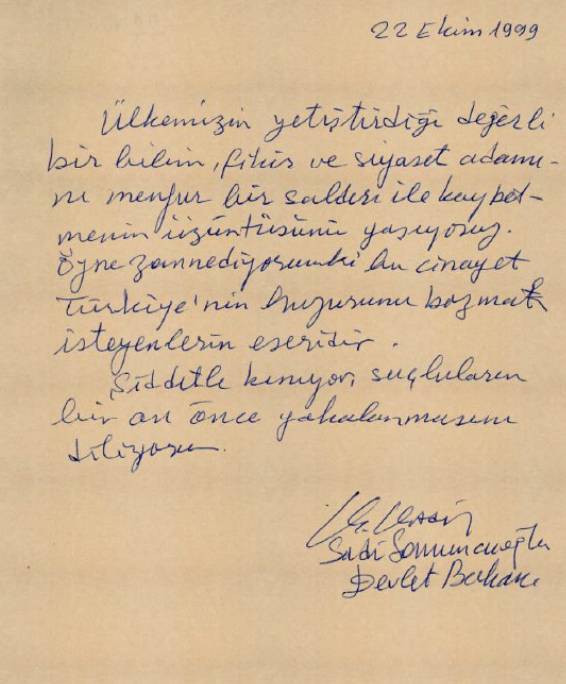 22 Ekim 1999
Ülkemizin yetiştirdiği değerli
bir bilim, fikir ve siyaset adamı-
nı menfur bir saldırı ile kaybet-
menin üzüntüsünü yaşıyoruz.
Öyne zannediyorumki bu cinayet
Türkiye'nin huzurunu bozmak
isteyenlerin eseridir.
Şiddetle kınıyor, suçluların
bir an önce yakalanmasını
diliyorum.
Sadi Somuncuoğlu
Devlet Bakanı